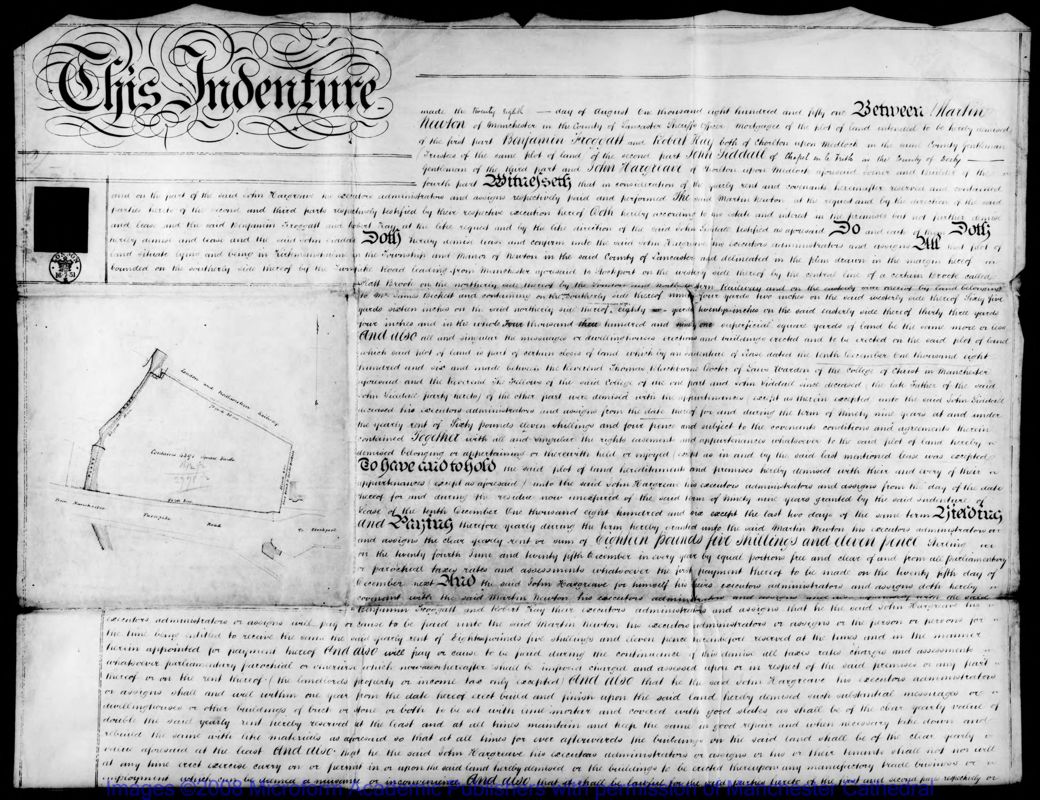 This Indenture
made the twenty eighth day of August One thousand eight hundred and fifty one Between Martin
Newton of Manchester in the County of Lancaster Sheriffs Officer Mortgagee of the plot of land intended to be hereby demised
of the first part Benjamin Froggatt and Robert Hay both of Chorlton upon Medlock in the said County gentlemen
Trustees of the same plot of land of the second part John Siddall of Chapel en le Frith in the County of Derby
gentleman of the third part and John Hargreave of Chorlton upon Medlock aforesaid Joiner and Builder of the
fourth part Witnesseth that in consideration of the yearly rent and covenants hereinafter reserved and contained
and on the part of the said John Hargreave his executors administrators and assigns respectively paid and performed The said Martin Newton at the request and by the direction of the said
parties hereto of the second and third parts respectively testified by their respective execution hereof Doth hereby according to his estate and interest in the premises but not further demise
and lease and the said Benjamin Froggatt and Robert Hay at the like request and by the like direction of the said John Siddall testified as aforesaid Do and each of them Doth
hereby demise and lease and the said John Siddall Doth hereby demise lease and confirm unto the said John Hargreave his executors administrators and assigns All that plot of
land situate lying and being in Kirkmanshulme in the Township and Manor of Newton in the said County of Lancaster and delineated in the plan drawn in the margin hereof
bounded on the southerly side thereof by the Turnpike Road leading from Manchester aforesaid to Stockport on the westerly side thereof by the central line of a certain Brook called
Brook on the northerly side thereof by the London and North Western Railway and on the easterly side thereof by land belonging
to Mr James Beckett and containing on the southerly side thereof ninety four yards two inches on the said westerly side thereof Sixty five
yards sixteen inches on the said northerly side thereof eighty yards twenty inches on the said easterly side thereof thirty three yards
four inches and in the whole Four thousand three hundred and ninety one superficial square yards of land be the same more or less
And also all and singular the messuages or dwellinghouses erections and buildings erected and to be erected on the said plot of land
which said plot of land is part of certain closes of land which by an indenture of Lease dated the tenth December One thousand eight
hundred and six and made between the Reverend Thomas Blackburne Doctor of Laws Warden of the College of Christ in Manchester
aforesaid and the Reverend The Fellows of the said College of the one part and John Siddall since deceased the late Father of the said
John Siddall party hereto of the other part were demised with the appurtenances (except as therein excepted) unto the said John Siddall
deceased his executors administrators and assigns from the date thereof for and during the term of Ninety nine years at and under
the yearly rent of Sixty pounds eleven shillings and four pence and subject to the covenants conditions and agreements therein
contained Together with all and singular the rights easements and appurtenances whatsoever to the said plot of land hereby
demised belonging or appertaining or therewith held or enjoyed (except as in and by the said last mentioned lease was excepted)
To have and to hold the said plot of land hereditaments and premises hereby demised with their and every of their
appurtenances (except as aforesaid) unto the said John Hargreave his executors administrators and assigns from the day of the date
hereof for and during the residue now unexpired of the said term of Ninety nine years granted by the said Indenture of
Lease of the tenth December One thousand eight hundred and six except the last two days of the same term Yielding
And Paying therefore yearly during the term hereby granted unto the said Martin Newton his executors administrators
and assigns the clear yearly rent or sum of Eighteen pounds five shillings and eleven pence Sterling
on the twenty fourth June and twenty fifth December in every year by equal portions free and clear of and from all parliamentary
or parochial taxes rates and assessments whatsoever the first payment thereof to be made on the twenty fifth day of
December next And the said John Hargreave for himself his heirs executors administrators and assigns doth hereby
covenant with the said Martin Newton his executors administrators and assigns and also separately with the said
Benjamin Froggatt and Robert Hay their executors administrators and assigns that he the said John Hargreave his
executors administrators or assigns will pay or cause to be paid unto the said Martin Newton his executors administrators or assigns or the person or persons for
the time being entitled to receive the same the said yearly rent of Eighteen pounds five shillings and eleven pence hereinbefore reserved at the times and in the manner
herein appointed for payment thereof And also will pay or cause to be paid during the continuance of this demise all taxes rates charges and assessments
whatsoever parliamentary parochial or otherwise which now are or hereafter shall be imposed charged and assessed upon or in respect of the said premises or any part
thereof or on the rent thereof (the landlords property or income tax only excepted) And also that he the said John Hargreave his executors administrators
or assigns shall and will within one year from the date hereof erect build and finish upon the said land hereby demised such substantial messuages or
dwellinghouses or other buildings of brick or stone or both to be set with lime mortar and covered with good slates as shall be of the clear yearly value of
double the said yearly rent hereby reserved at the least and at all times maintain and keep the same in good repair and when necessary take down and
rebuild the same with like materials as aforesaid so that at all times for ever afterwards the buildings on the said land shall be of the clear yearly
value aforesaid at the least And also that he the said John Hargreave his executors administrators or assigns or his or their tenants shall not nor will
at any time erect exercise carry on or permit in or upon the said land hereby demised or the buildings to be erected thereupon any manufactory trade business or
employment which can be deemed a nuisance or inconvenience And also that it shall be lawful for the said parties hereto of the first and second parts respectively or
London and Northwestern Railway
Contains Square Yards
From Manchester
Turnpike Road
to Stockport
Images ©2008 Microform Academic Publishers with permission of Manchester Cathedral